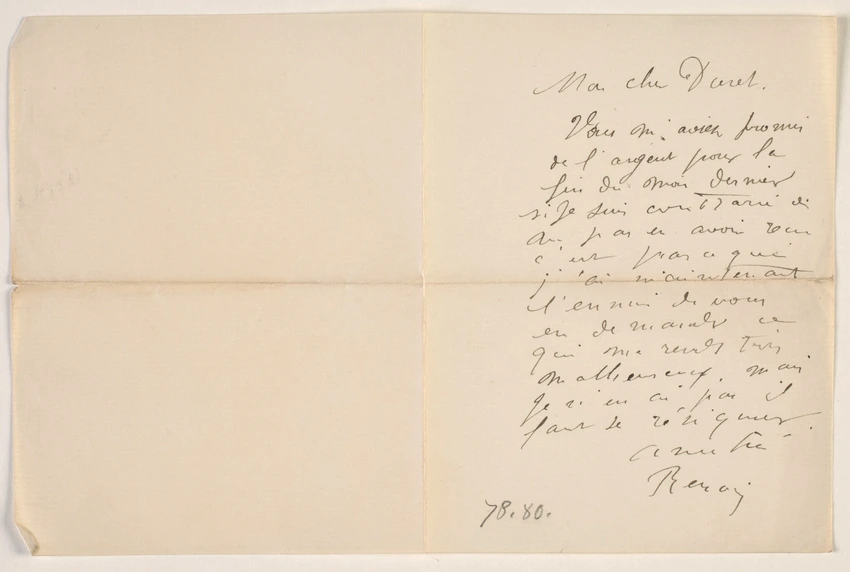 Mon cher Duret.
Vous m'aviez promis
de l'argent pour la
fin du mois dernier
si je suis contrarié de
ne pas en avoir reçu
c'est parce que
j'ai maintenant
l'ennui de vous
en demander ce
qui me rend très
malheureux. mais
je n'en ai pas il
faut se résigner.
amitié
Renoir
78.80.